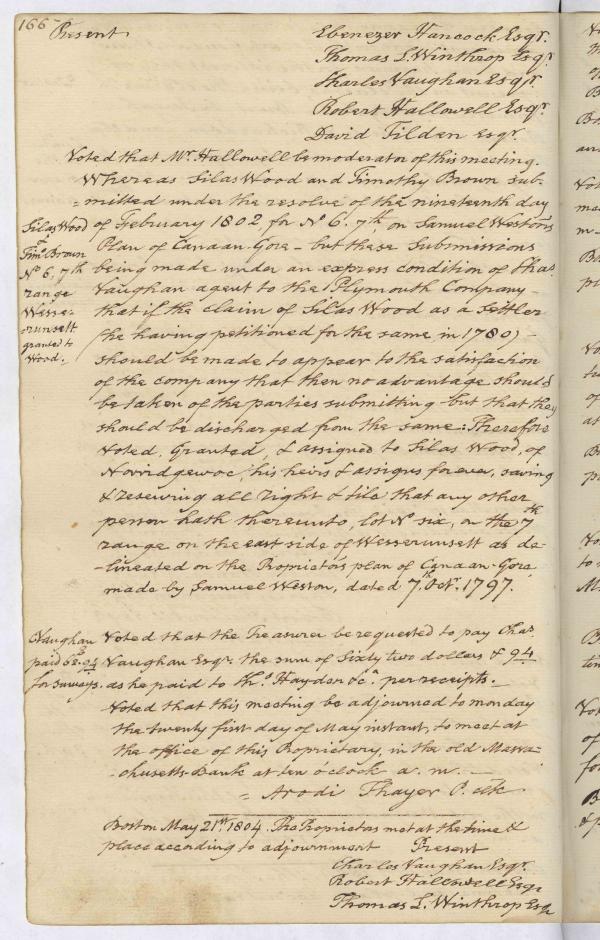 166
Present
Ebenezer Hancock Esqr.
Thomas L. Winthrop Esqr
Charles Vaughan Esqr.
Robert Hallowell Esqr
David Tilden Esqr
Voted that Mr. Hallowell be moderator of this meeting.
Whereas Silas Wood and Timothy Brown sub-
=mitted under the resolve of the nineteenth day
of February 1802, for No 6. 7th on Samuel Weston's
Plan of Canaan-Gore - but these Submissions
being made under an express condition of Chas.
Vaughan agent to the Plymouth Company -
that if the claim of Silas Wood as a Settler
(he having petitioned for the same in 1780) -
should be made to appear to the satisfaction
of the company that then no advantage should
be taken of the parties submitting but that they
should be discharged from the same: Therefore
Voted, Granted, & assigned to Silas Wood, of
Norridgewoc, his heirs & assigns forever, saving
& reserving all right & title that any other
person hath thereunto, lot No six, on the 7th
range on the east side of Wesserunsett as de-
-lineated on the Proprietors plan of Canaan-Gore,
made by Samuel Weston, dated 7th Octr. 1797.
Silas Wood
&
Timo. Brown
No 6. 7th
range
Wesse-
-runsett
granted to
Wood.
CVaughan
paid 62 Ds. 94
for surveys.
Voted that the Treasurer be requested to pay Chas.
Vaughan Esqr. the sum of Sixty two dollars & 94
as he paid to Tho.s Hayden &ca. per receipts. -
Voted that this meeting be adjourned to monday
the twenty first day of May instant, to meet at
the office of this Proprietary, in the old Massa-
-chusetts-Bank at ten o'clock a. m. -
- Arodi Thayer P. clk
Boston May 21st 1804. The Proprietors met at the time &
place according to adjournment Present
Charles Vaughan Esqr.
Robert Hallowell Esqr
Thomas L. Winthrop Esqr